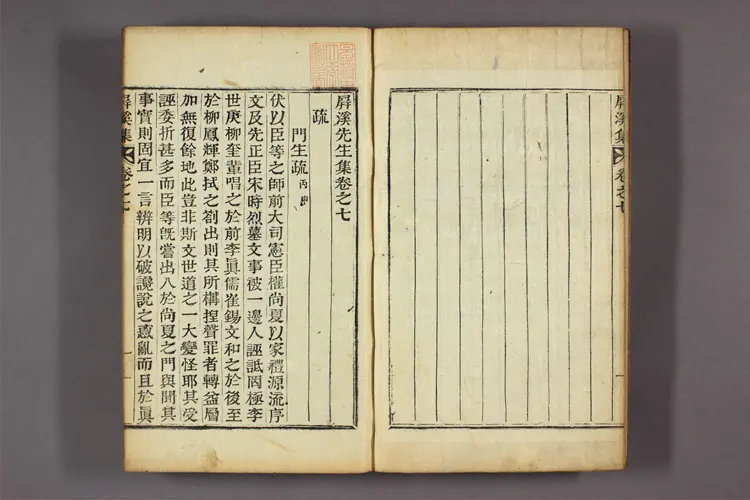 屛溪集
卷之七
屛溪先生集卷之七
疏
門生疏 丙申
伏以臣等之師前大司憲臣權尙夏以家禮源流序
文及先正臣宋時烈墓文事被一邊人誣詆罔極李
世庚柳奎輩唱之於前李眞儒崔錫文和之於後至
於柳鳳輝鄭拭之劄出則其所構捏聲罪者轉益層
加無復餘地此豈非斯文世道之一大變怪耶其受
誣委折甚多而臣等旣嘗出入於尙夏之門與聞其
事實則固宜一言辨明以破讒說之惑亂而且於眞
屛溪集
卷之七
一